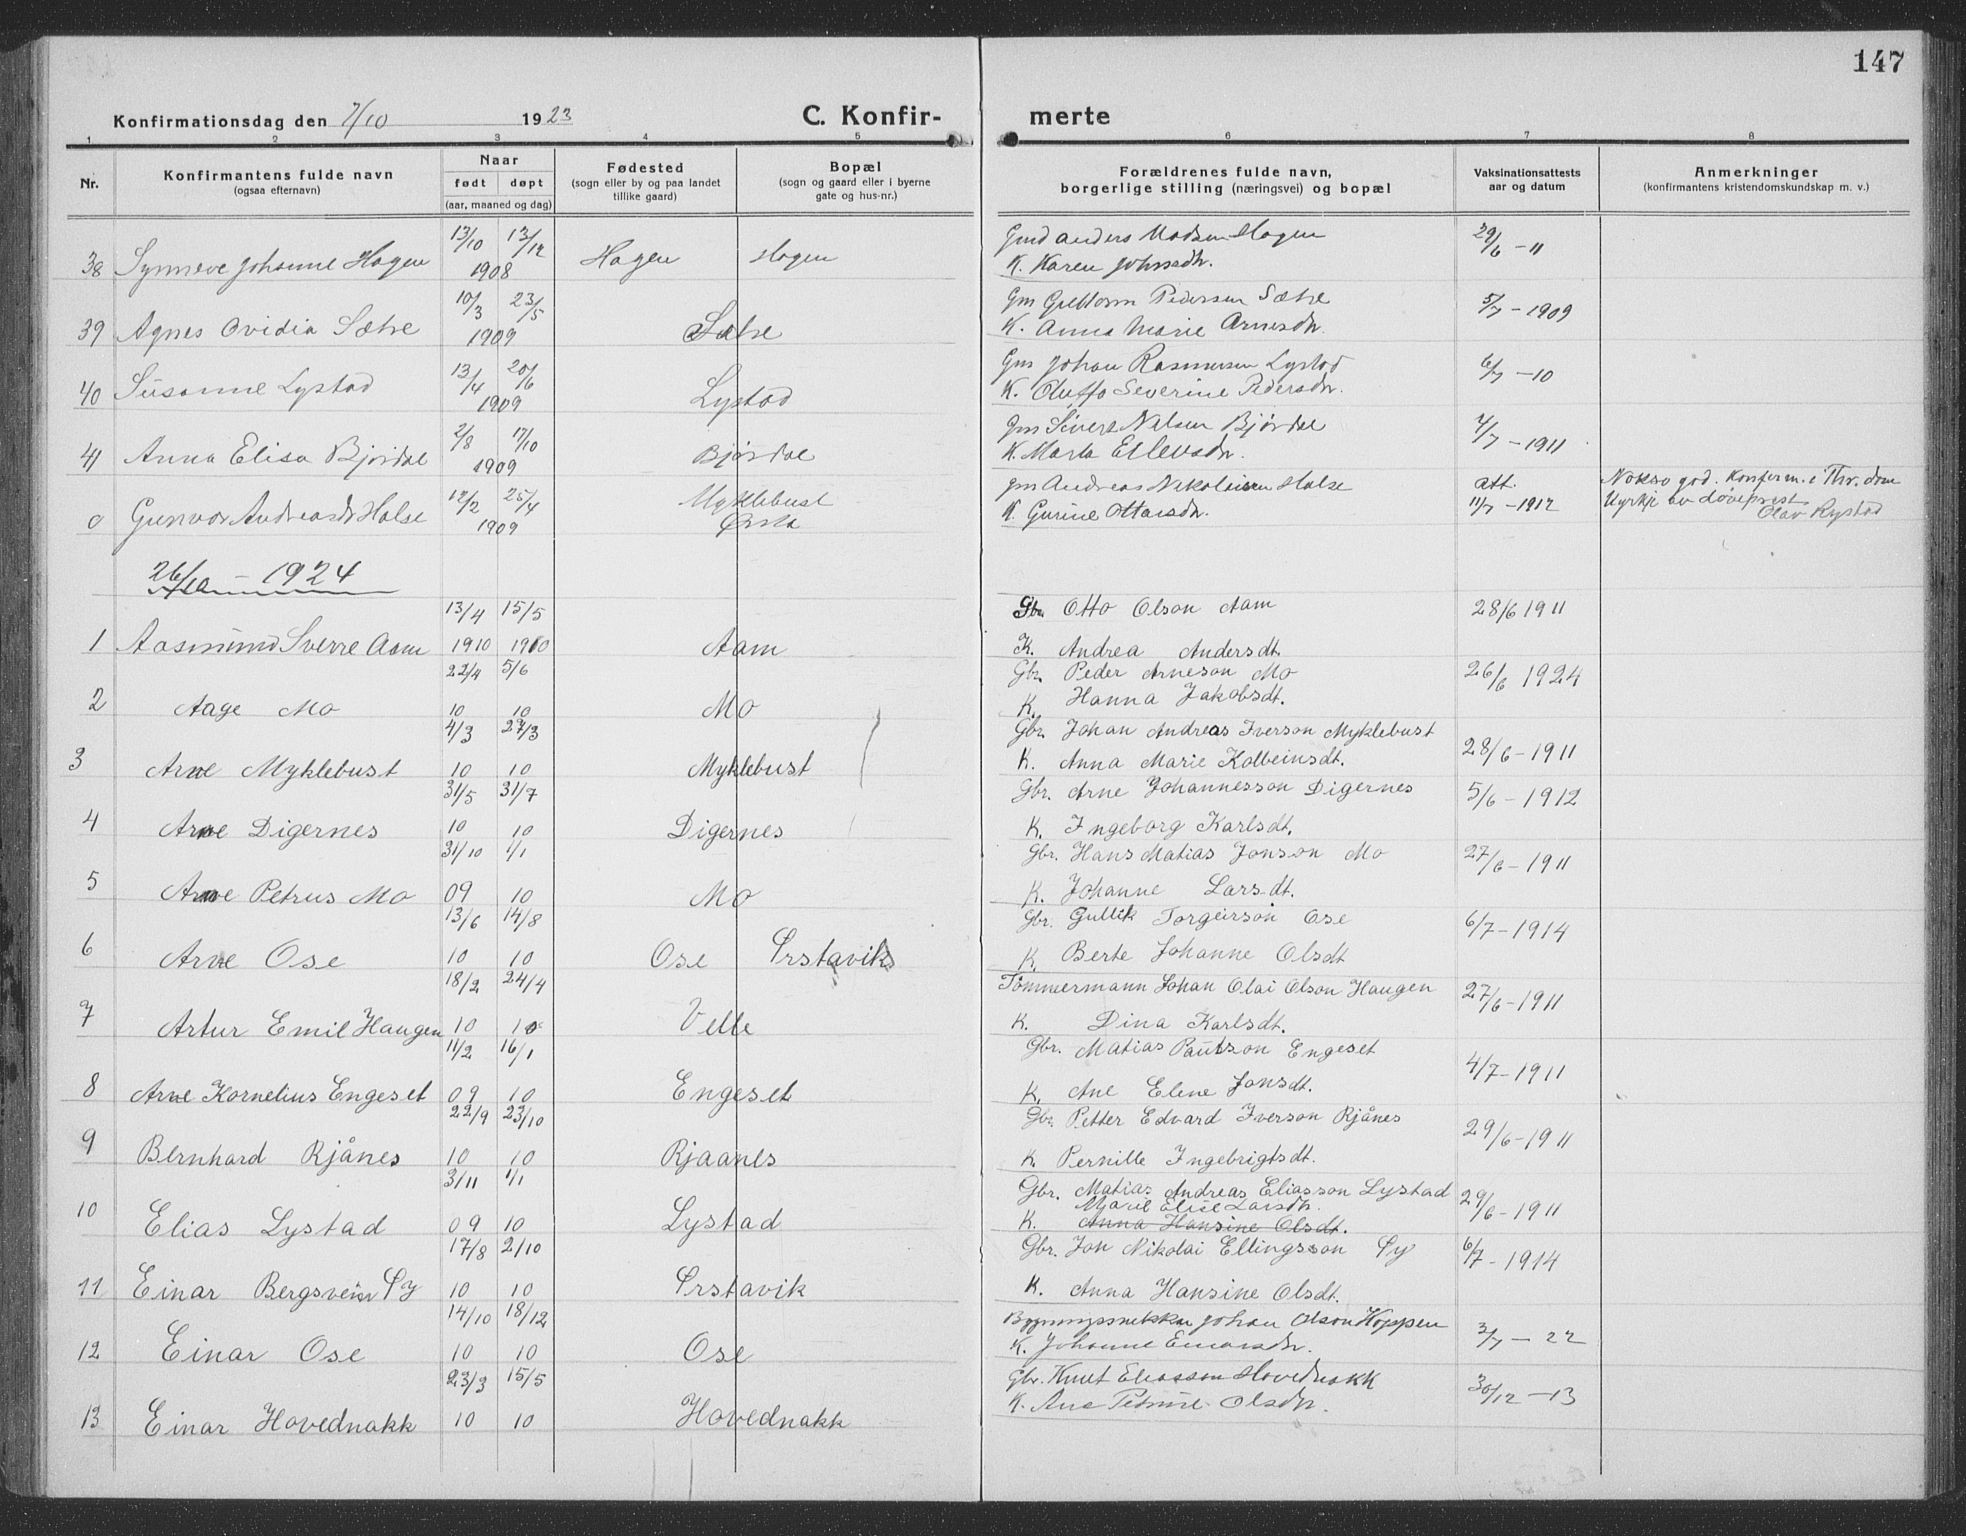 147
Konfirmationsdag den 7/10 1923 C. Konfir- merte
1 2 3 4 5 6 7 8
Nr.
Konfirmantens fulde navn
(ogsaa efternavn)
Naar
født døpt
(aar, maaned og dag)
Fødested
(sogn eller by og paa landet
tillike gaard)
Bopæl
(sogn og gaard eller i byerne
gate og hus-nr.)
Forældrenes fulde navn,
borgerlige stilling (næringsvei) og bopæl
Vaksinationsattests
aar og datum
Anmerkninger
(konfirmantens kristendomskundskap m. v.)
13/10 13/12 Gmd Anders Madsen Hagen 29/6 - 11
38 Synneve Johanne Hagen 1908 Hagen Hagen K. Karen Johnsdtr.
10/3 23/5 Gm Guttorm Pedersen Sætre 5/7 - 1909
39 Agnes Ovidia Sætre 1909 Sætre K. Anna Marie Arnesdtr.
13/4 20/6 Gm Johan Rasmussen Lystad 6/7 - 10
40 Susanne Lystad 1909 Lystad K. Oluffa Severine Pedersdtr.
2/8 17/10 Gm Sivert Nilsen Bjørdal 4/7 - 1911
41 Anna Elisa Bjørdal 1909 Bjørdal K. Marta Ellevsdtr.
12/2 25/4 Myklebust Gm Andreas Nikolaisen Halse att. Nokso god. Konferm. i Thr. dom
0 Gunvor Andreasdtr Halse 1909 Ørsta K. Gurine Ottarsdtr. 11/7 - 1912 kyrkje av døveprest
Olav Rystad
26/10 - 1924
13/4 15/5 Gbr. Otto Olson Aam 28/6 1911
1 Aasmund Sverre Aam 1910 1910 Aam K. Andrea Andersdt.
22/4 5/6 Gbr. Peder Arneson Mo 26/6 1924
2 Aage Mo 10 10 Mo K. Hanna Jakobsdt.
4/3 27/3 Gbr. Johan Andreas Iverson Myklebust
3 Arne Myklebust 10 10 Myklebust K. Anna Marie Kolbeinsdt. 28/6 - 1911
31/5 31/7 Gbr. Arne Johannesson Digernes 5/6 - 1912
4 Arne Digernes 10 10 Digernes K. Ingeborg Karlsdt.
31/10 1/1 Gbr. Hans Matias Jonson Mo 27/6 - 1911
5 Arne Petrus Mo 09 10 Mo K. Johanne Larsdt.
13/6 14/8 Gbr. Gullik Torgeirson Ose 6/7 - 1914
6 Arne Ose 10 10 Ose Ørstavik K. Berte Johanne Olsdt
18/2 24/4 Tømmermann Johan Olai Olson Haugen 27/6 - 1911
7 Artur Emil Haugen 10 10 Velle K. Dina Karlsdt.
11/2 16/1 Gbr. Matias Paulson Engeset 4/7 - 1911
8 Arne Kornelius Engeset 09 10 Engeset K. Ane Elene Jonsdt.
22/9 23/10 Gbr. Petter Edvard Iverson Rjånes 29/6 - 1911
9 Bernhard Rjånes 10 10 Rjaanes K. Pernille Ingebrigtsdt.
3/11 1/1 Gbr. Matias Andreas Eliasson Lystad 29/6 - 1911
Marie Elise Larsdtr.
10 Elias Lystad 09 10 Lystad K. Anna Hansine Olsdt.
17/8 2/10 Gbr. Jon Nikolai Ellingsson Øy 6/7 - 1914
11 Einar Bergsvein Øy 10 10 Ørstavik K. Anna Hansine Olsdt.
14/10 18/12 Bygningssnekkar Johan Olson Hoppen 3/7 - 22
12 Einar Ose 10 10 Ose K. Johanne Einarsdtr.
23/3 15/5 Gbr. Knut Eliassen Hovednakk 30/12 - 13
13 Einar Hovednakk 10 10 Hovednakk K. Ane Petrine Olsdtr.